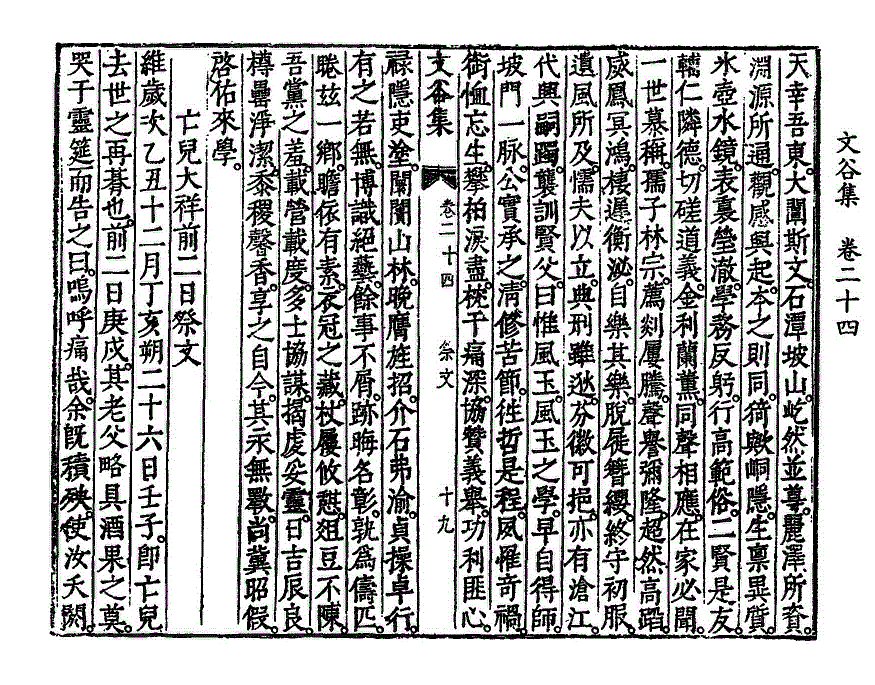 文谷集　卷二十四
天幸吾東。大闡斯文。石潭坡山。屹然並尊。麗澤所資。
淵源所通。觀感興起。本之則同。猗歟峒隱。生禀異質。
氷壺水鏡。表裏瑩澈。學務反躬。行高範俗。二賢是友。
輔仁隣德。切磋道義。金利蘭薰。同聲相應。在家必聞。
一世慕稱。孺子林宗。薦剡屢騰。聲譽彌隆。超然高蹈。
威鳳冥鴻。棲遲衡泌。自樂其樂。脫屣簪纓。終守初服。
遺風所及。懦夫以立。典刑雖逖。芬徽可挹。亦有滄江。
代興嗣躅。襲訓賢父。曰惟風玉。風玉之學。早自得師。
坡門一脉。公實承之。淸修苦節。往哲是程。夙罹奇禍。
銜恤忘生。攀柏淚盡。枕干痛深。協贊義擧。功利匪心。
文谷集　卷二十四　祭文　十九
祿隱吏塗。闤闠山林。晩膺旌招。介石弗渝。貞操卓行。
有之若無。博識絶藝。餘事不屑。跡晦名彰。孰爲儔匹。
睠玆一鄕。瞻依有素。衣冠之藏。杖屨攸憩。俎豆不陳。
吾黨之羞。載營載度。多士協謀。揭虔妥靈。日吉辰良。
樽罍淨潔。黍稷馨香。享之自今。其永無斁。尙冀昭假。
啓佑來學。
亡兒大祥前二日祭文
維歲次乙丑十二月丁亥朔二十六日壬子。卽亡兒
去世之再朞也。前二日庚戌。其老父略具酒果之奠。
哭于靈筵而告之曰。嗚呼痛哉。余旣積殃。使汝夭閼。